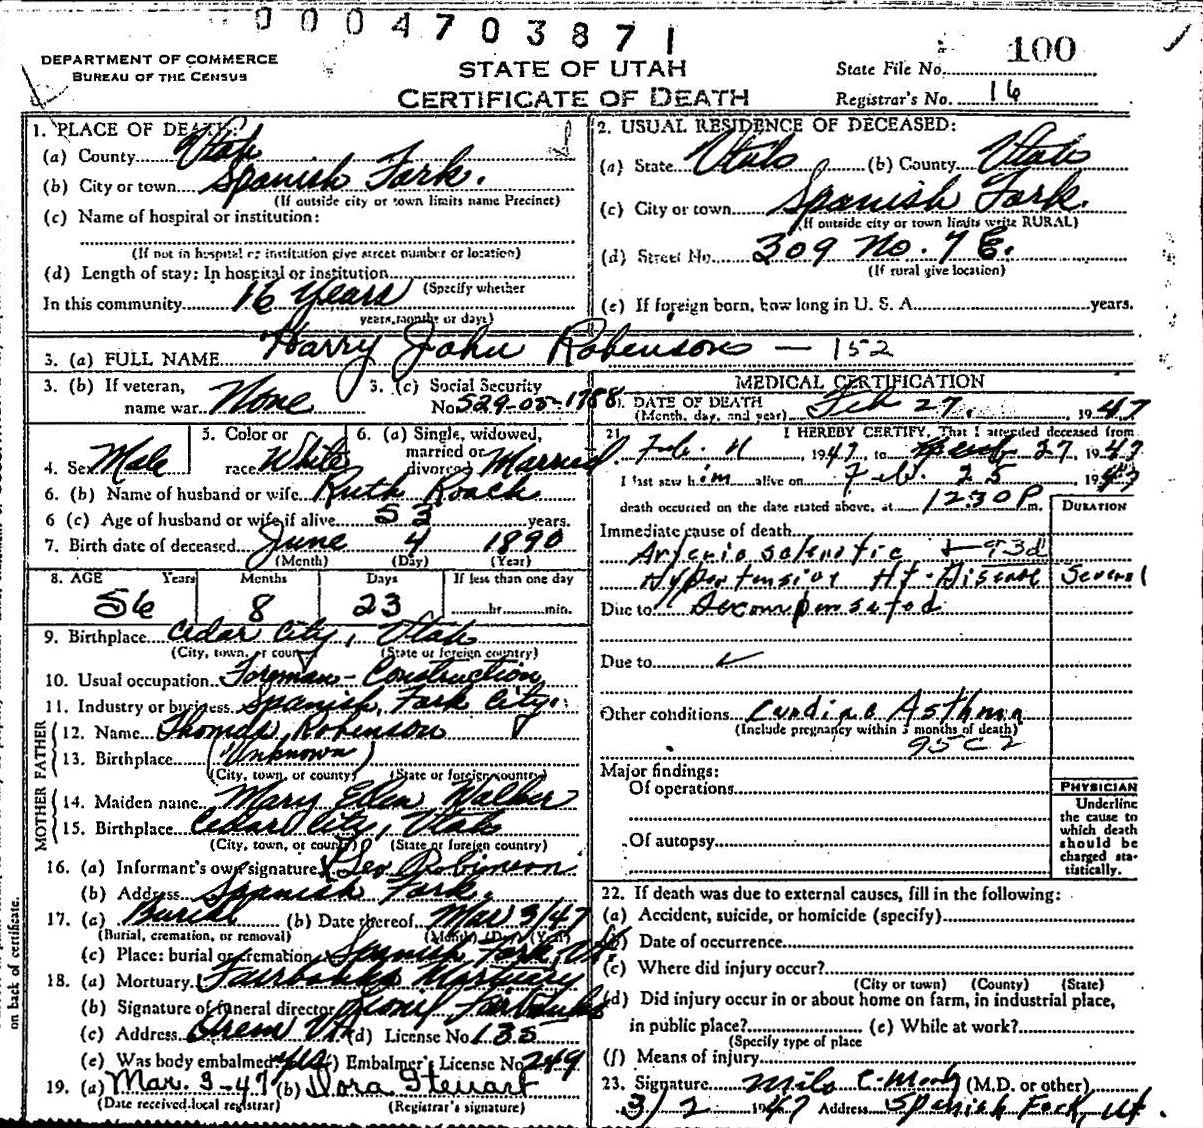 0004703871
DEPARTMENT OF COMMERCE
BUREAU OF THE CENSUS
STATE OF UTAH
CERTIFICATE OF DEATH
State File No. 100
Registrar's No. 16
1. PLACE OF DEATH:
(a) County Utah
(b) City or town Spanish Fork.
(If outside city or town limits name Precinct)
(c) Name of hospital or institution:
(If not in hospital or institution give street number or location)
(d) Length of stay: In hospital or institution
(Specify whether
In this community 16 Years
years, months or days)
2. USUAL RESIDENCE OF DECEASED:
(a) State Utah (b) County Utah
(c) City or town Spanish Fork.
(If outside city or town limits write RURAL)
(d) Street No. 309 No. 7 E.
(If rural give location)
(e) If foreign born, how long in U. S. A. years.
3. (a) FULL NAME Harry John Robinson — 152
3. (b) If veteran, name war None
3. (c) Social Security No. 529-05-1788
4. Sex Male
5. Color or race White
6. (a) Single, widowed, married or divorced Married
6. (b) Name of husband or wife Ruth Roach
6 (c) Age of husband or wife if alive 53 years.
7. Birth date of deceased June 4 1890
(Month) (Day) (Year)
8. AGE Years Months Days If less than one day
56 8 23 hr. min.
9. Birthplace Cedar City, Utah
(City, town, or county) (State or foreign country)
10. Usual occupation Foreman - Construction
11. Industry or business Spanish Fork City.
FATHER
12. Name Thomas Robinson
13. Birthplace (Unknown)
(City, town, or county) (State or foreign country)
MOTHER
14. Maiden name Mary Ellen Walker
15. Birthplace Cedar City, Utah
(City, town, or county) (State or foreign country)
16. (a) Informant's own signature Leo Robinson
(b) Address Spanish Fork.
17. (a) Burial (b) Date thereof Mar 3/47
(Burial, cremation, or removal) (Month) (Day) (Year)
(c) Place: burial or cremation Spanish Fork, Ut.
18. (a) Mortuary Fairbanks Mortuary
(b) Signature of funeral director Fairbanks
(c) Address Orem Ut (d) License No. 135
(e) Was body embalmed? Yes (f) Embalmer's License No. 249
19. (a) Mar. 3-47 (b) Dora Stewart
(Date received local registrar) (Registrar's signature)
on back of certificate.
MEDICAL CERTIFICATION
20. DATE OF DEATH
(Month, day, and year) Feb 27, 1947
21. I HEREBY CERTIFY, That I attended deceased from
Feb. 11 1947, to Feb 27, 1947
I last saw him alive on Feb. 25 1947
death occurred on the date stated above, at 1230 P.m.
DURATION
Immediate cause of death
Arteriosclerotic + 93d
Hypertensive Ht. Disease Several
Due to Decompensated
Due to
Other conditions Cardiac Asthma
(Include pregnancy within 3 months of death)
95C2
Major findings:
Of operations
Of autopsy
PHYSICIAN
Underline
the cause to
which death
should be
charged sta-
tistically.
22. If death was due to external causes, fill in the following:
(a) Accident, suicide, or homicide (specify)
(b) Date of occurrence
(c) Where did injury occur?
(City or town) (County) (State)
(d) Did injury occur in or about home on farm, in industrial place,
in public place? (e) While at work?
(Specify type of place
(f) Means of injury
23. Signature Milo C. Moody (M.D. or other)
3/2 1947 Address Spanish Fork, Ut.